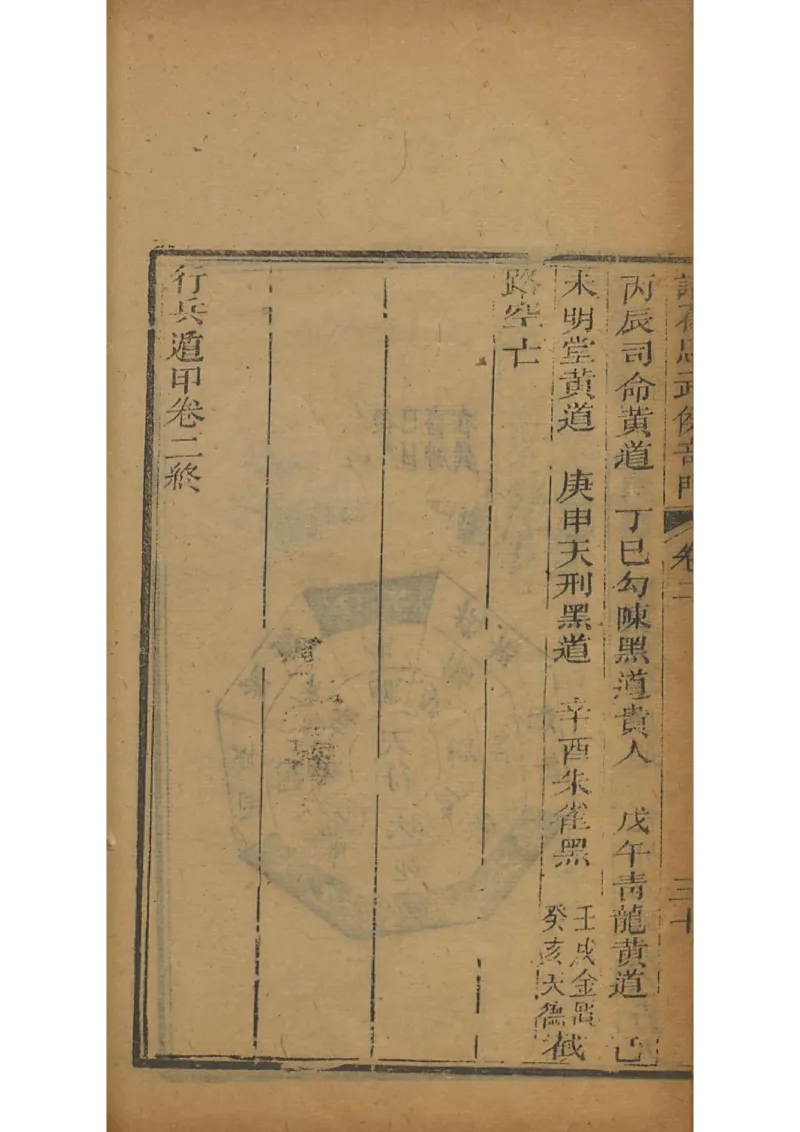 武侯奇門
卷二
三十
丙辰司命黃道 丁巳勾陳黑道貴人 戊午青龍黃道 己
未明堂黃道 庚申天刑黑道 辛酉朱雀黑 壬戌金匱
癸亥天德 截
路空亡
行兵遁甲卷二終